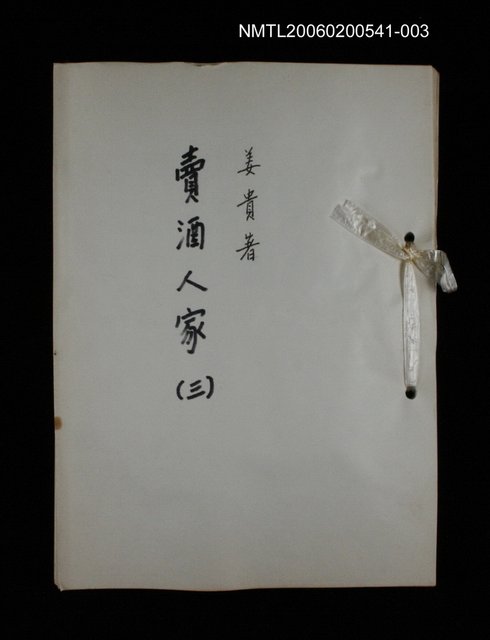 NMTL20060200541-003
姜貴著
賣酒人家
(三)